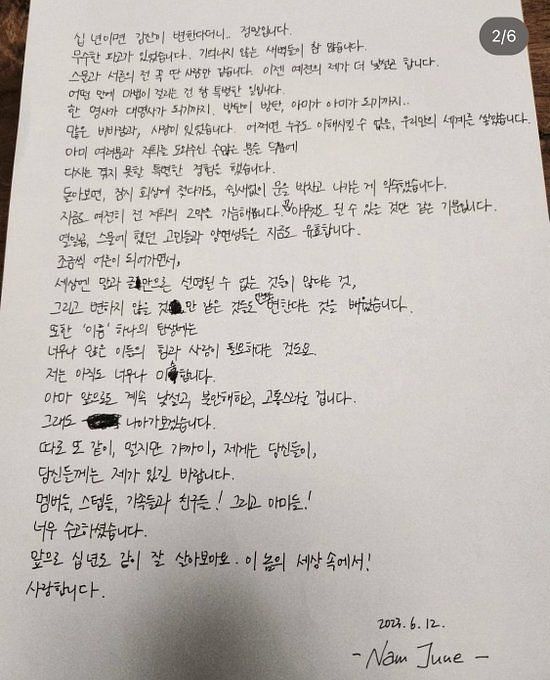 2/6
십 년이면 강산이 변한다더니.. 정말입니다.
무수한 파고가 있었습니다. 기억나지 않는 새벽들이 참 많습니다.
스물과 서른의 전 꼭 딴 사람만 같습니다. 이젠 예전의 제가 더 낯설곤 합니다.
어떤 안에 마법이 걸리는 건 참 특별한 일입니다.
한 명사가 대명사가 되기까지. 방탄이 방탄, 아미가 아미가 되기까지..
많은 비바람과, 사랑이 있었습니다. 어쩌면 누구도 이해시킬 수 없을, 우리만의 세계를 쌓았습니다.
아미 여러분과 저희를 도와주신 수많은 분들 덕분에
다시는 겪지 못할 특별한 경험을 했습니다.
돌아보면, 잠시 회상에 젖다가도, 쉴새없이 문을 박차고 나가는 게 익숙했습니다.
지금도 여전히 전 저희의 2막을 가늠해봅니다. 또 아무것도 될 수 있을 것만 같은 기분입니다.
열일곱, 스물에 했던 고민들과 양면성들은 지금도 유효합니다.
조금씩 어른이 되어가면서,
세상엔 말과 글만으론 설명될 수 없는 것들이 많다는 것,
그리고 변하지 않을 것만 같은 것들도 반드시 변한다는 것을 배웠습니다.
또한 '이름' 하나의 탄생에는
너무나 많은 이들의 힘과 사랑이 필요하다는 것도요.
저는 아직도 너무나 미숙합니다.
아마 앞으로도 계속 낯설고, 불안해하고, 고통스러울 겁니다.
그래도 나아가보겠습니다.
따로 또 같이, 멀지만 가까이, 제게는 당신들이,
당신들께는 제가 있길 바랍니다.
멤버들, 스텝들, 가족들과 친구들! 그리고 아미들!
너무 수고하셨습니다.
앞으로 십 년도 같이 잘 살아보아요. 이 놈의 세상 속에서!
사랑합니다.
2023. 6. 12.
- Nam June -